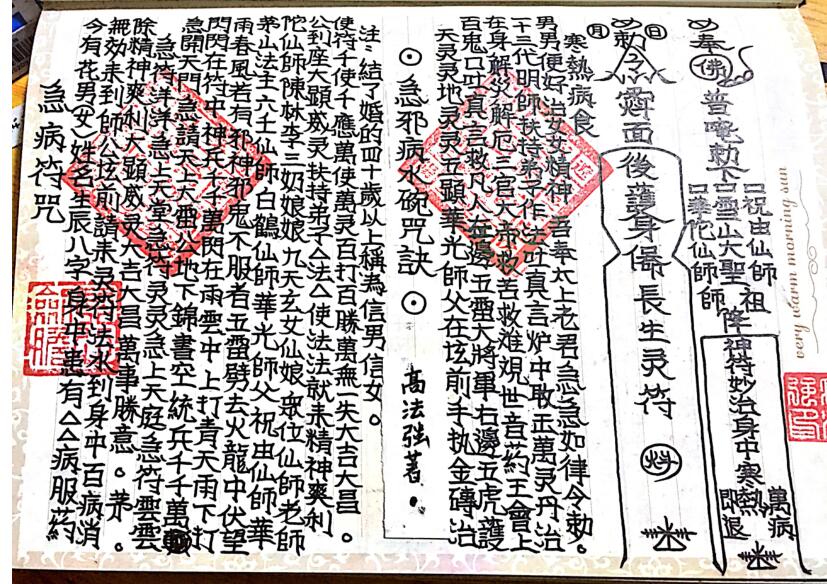 急病符咒
今有花男(女)姓名生辰八字身中患有△△病服药
無効来到師公坛前請来灵符法水到身中百病消
除精神爽利大顕威灵大吉大昌萬事勝意。茅。
急符洋洋急上天堂急符灵灵急上天庭急符雲雲
急開天門急請天上天雷公地下錦書空統兵千千萬
閃閃在符中神兵千千萬閃在雨雲中上打青天雨下打
雨春風若有邪神邪鬼不服者五雷劈去火龍中伏望
茅山法主六壬仙師白鶴仙師華光師父祝由仙師華
陀仙師陳林李三奶娘娘九天玄女仙娘众位仙師老師
公到座大顕威灵扶持弟子△法△使法法就来精神爽利
使符千使千應萬使萬灵百打百勝萬無一失大吉大昌。
注:結了婚的四十歲以上稱為信男信女。
⊙急邪病水碗咒訣⊙
高法强著。
天灵灵地灵灵五顕華光師父在坛前手执金磚治
百鬼口吐真言救凡人左邊五雷大將軍右邊五虎護
在身解災解厄三官大帝救苦救难观世音药王會上
十三代明師扶持弟子作法吐真言炉中取出萬灵丹治
男男便好治女女精神吾奉太上老君急急如律令勅。
寒熱病食
月 日
勅
面後護身保長生灵符
奉佛普唵勅下
祝由仙師
雪山大聖祖師
華陀仙師
降神符妙治身中寒熱萬病即退
very warm morning sun